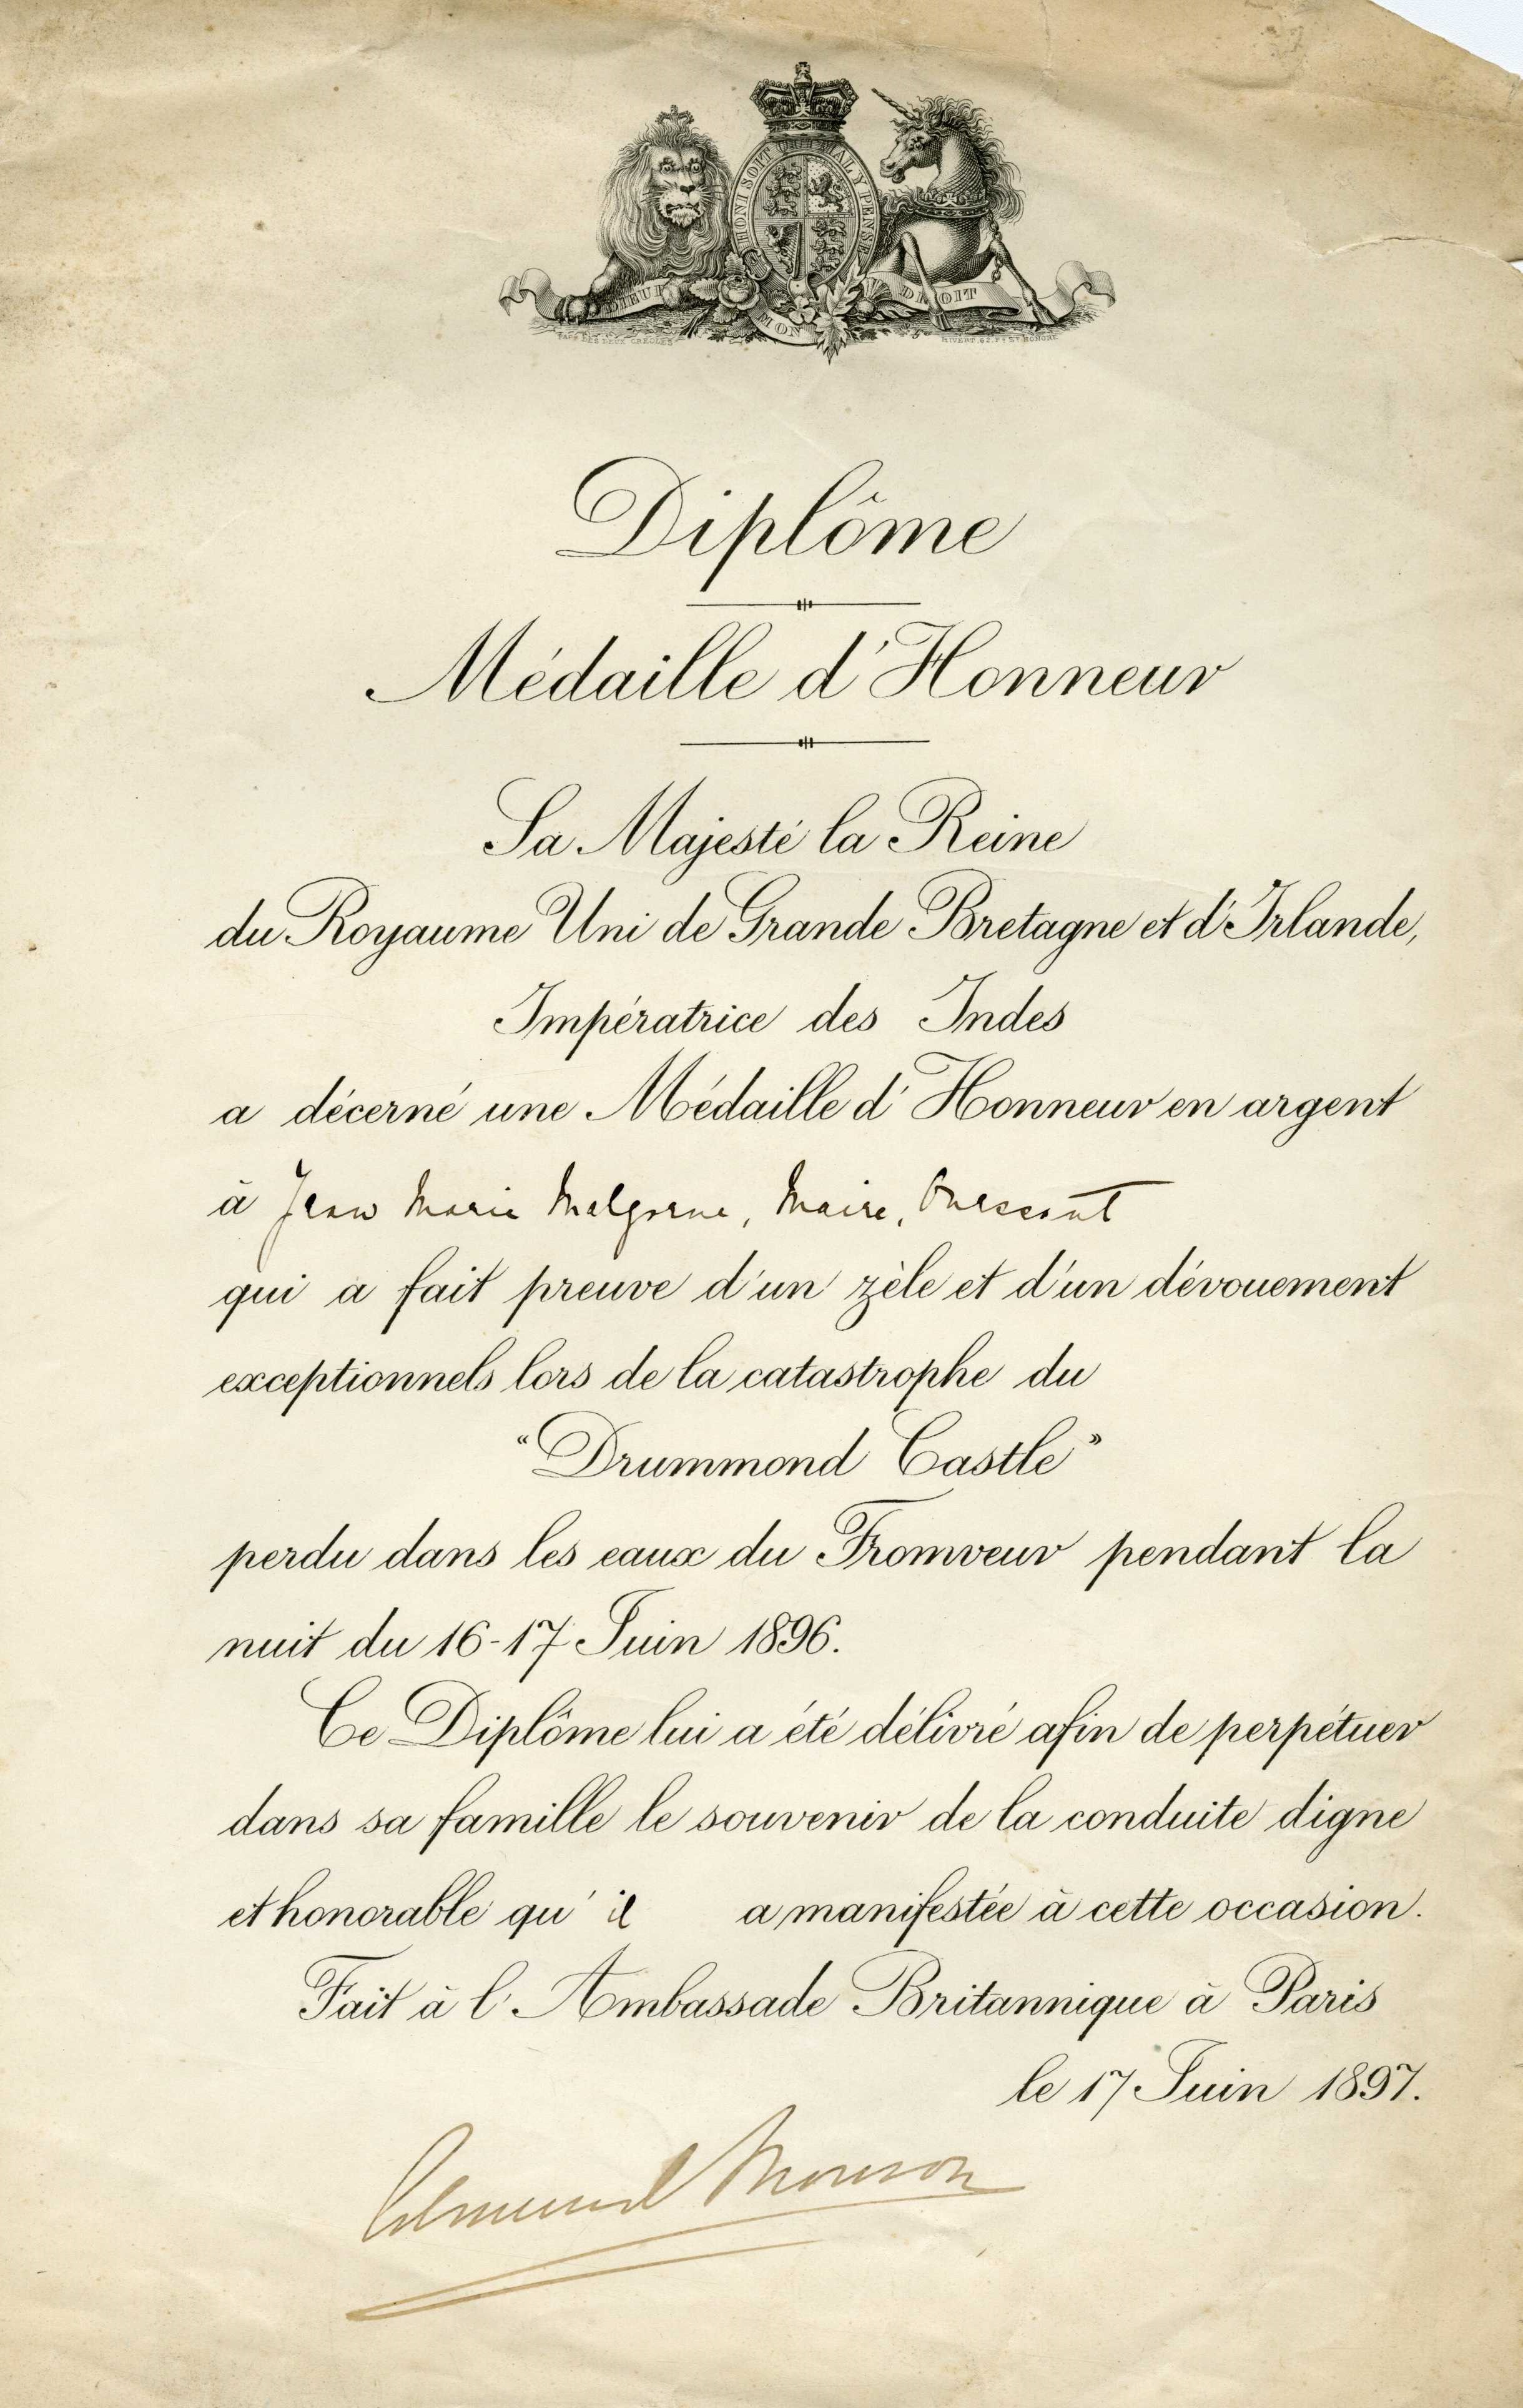 HONI SOIT QUI MAL Y PENSE
DIEU ET MON DROIT
Diplôme
Médaille d'Honneur
Sa Majesté la Reine
du Royaume Uni de Grande Bretagne et d'Irlande,
Impératrice des Indes
a décerné une Médaille d'Honneur en argent
à Jean Marie Malgorne, Maire, Ouessant
qui a fait preuve d'un zèle et d'un dévouement
exceptionnels lors de la catastrophe du
"Drummond Castle"
perdu dans les eaux du Fromveur pendant la
nuit du 16-17 Juin 1896.
Ce Diplôme lui a été délivré afin de perpétuer
dans sa famille le souvenir de la conduite digne
et honorable qu'il a manifestée à cette occasion.
Fait à l'Ambassade Britannique à Paris
le 17 Juin 1897.
Edmund Monson